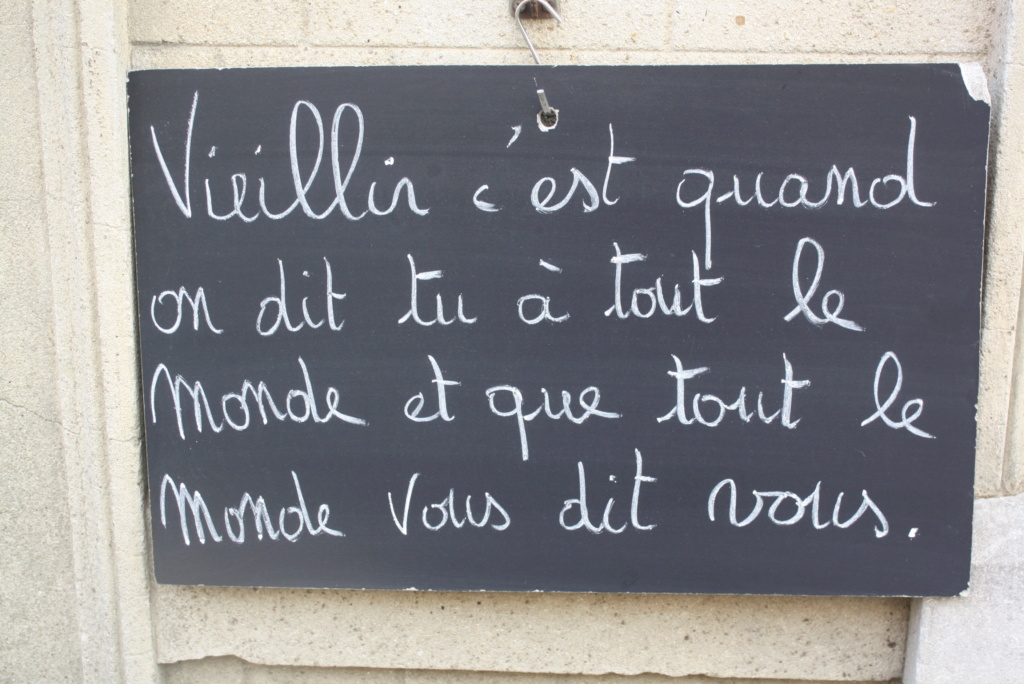 Vieillir c'est quand
on dit tu à tout le
monde et que tout le
monde vous dit vous.